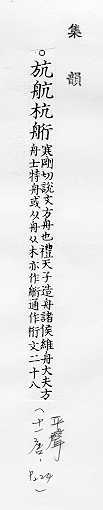 集韻
。斻航杭䑪
寒剛切說文方舟也禮天子造舟諸侯維舟大夫方
舟士特舟或从舟从木亦作䑪通作桁文二十八
(平聲
十一唐.
P.24)